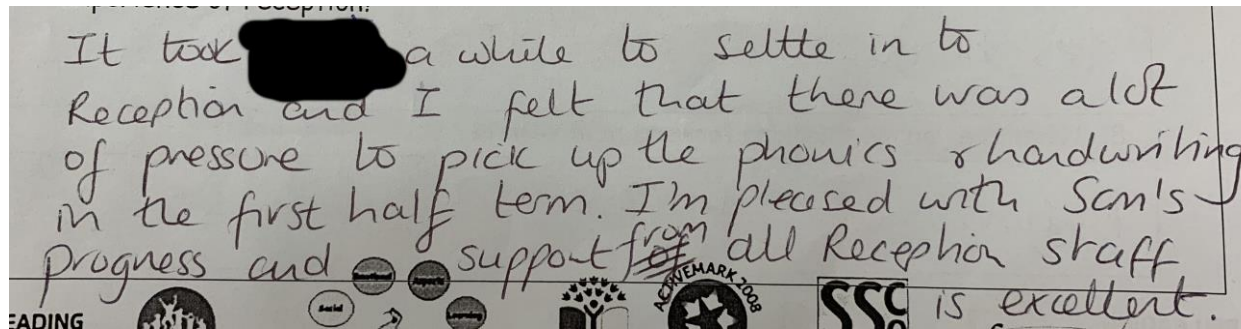 It took a while to settle in to
Reception and I felt that there was a lot
of pressure to pick up the phonics & handwriting
in the first half term. I'm pleased with Sam's
progress and support from all Reception staff
is excellent.
ACTIVEMARK 2008
Social
Learning
EADING
SSC